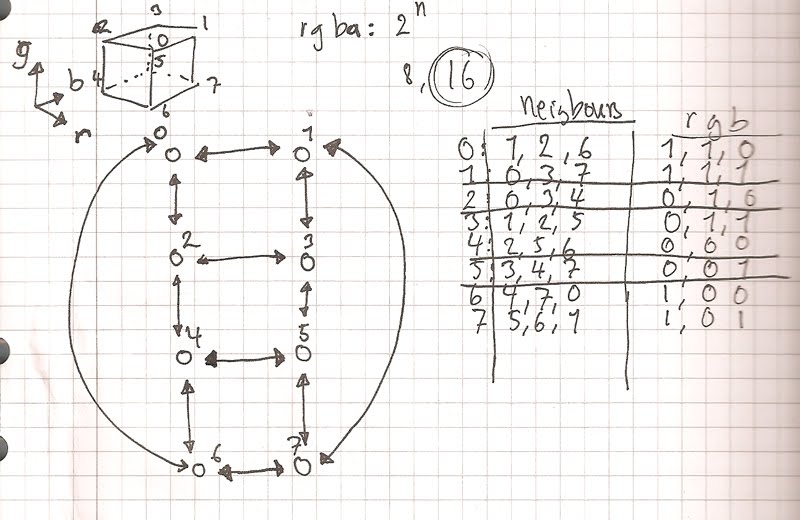 3
2 1
0
g 5
4 b 7
r 6
rgba: 2^n
8, 16
neigbours r g b
0: 1, 2, 6 1, 1, 0
1: 0, 3, 7 1, 1, 1
2 0, 3, 4 0, 1, 0
3: 1, 2, 5 0, 1, 1
4: 2, 5, 6 0, 0 0
5: 3, 4, 7 0, 0 1
6 4, 7, 0 1, 0 0
7 5, 6, 1 1, 0 1
0 1
2 3
4 5
6 7